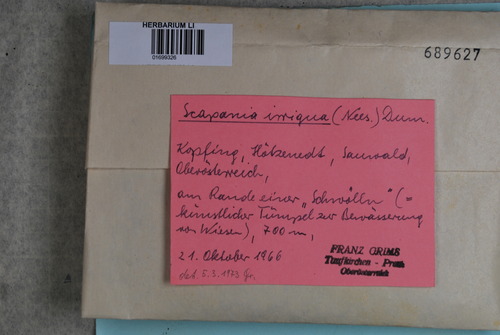 HERBARIUM LI
01699326
689627
Scapania irrigua (Nees.) Dum.
Kopfing, Hötzenedt, Sauwald,
Oberösterreich,
am Rande einer „Schwölln" (=
künstlicher Tümpel zur Bewässerung
von Wiesen), 700 m,
21. Oktober 1966
det 5.3.1973 Gr.
FRANZ GRIMS
Taufkirchen - Pram
Oberösterreich